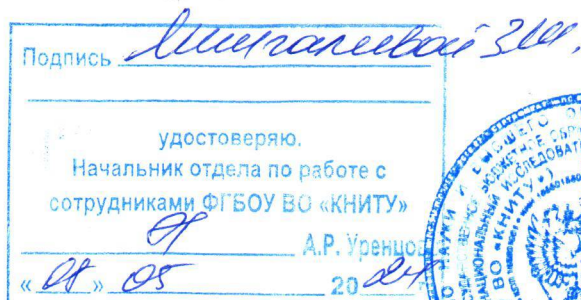 Подпись Мингалеевой З.Ш.
удостоверяю.
Начальник отдела по работе с
сотрудниками ФГБОУ ВО «КНИТУ»
А.Р. Уренцо
« 08 » 05 20 24
ВО «КНИТУ»